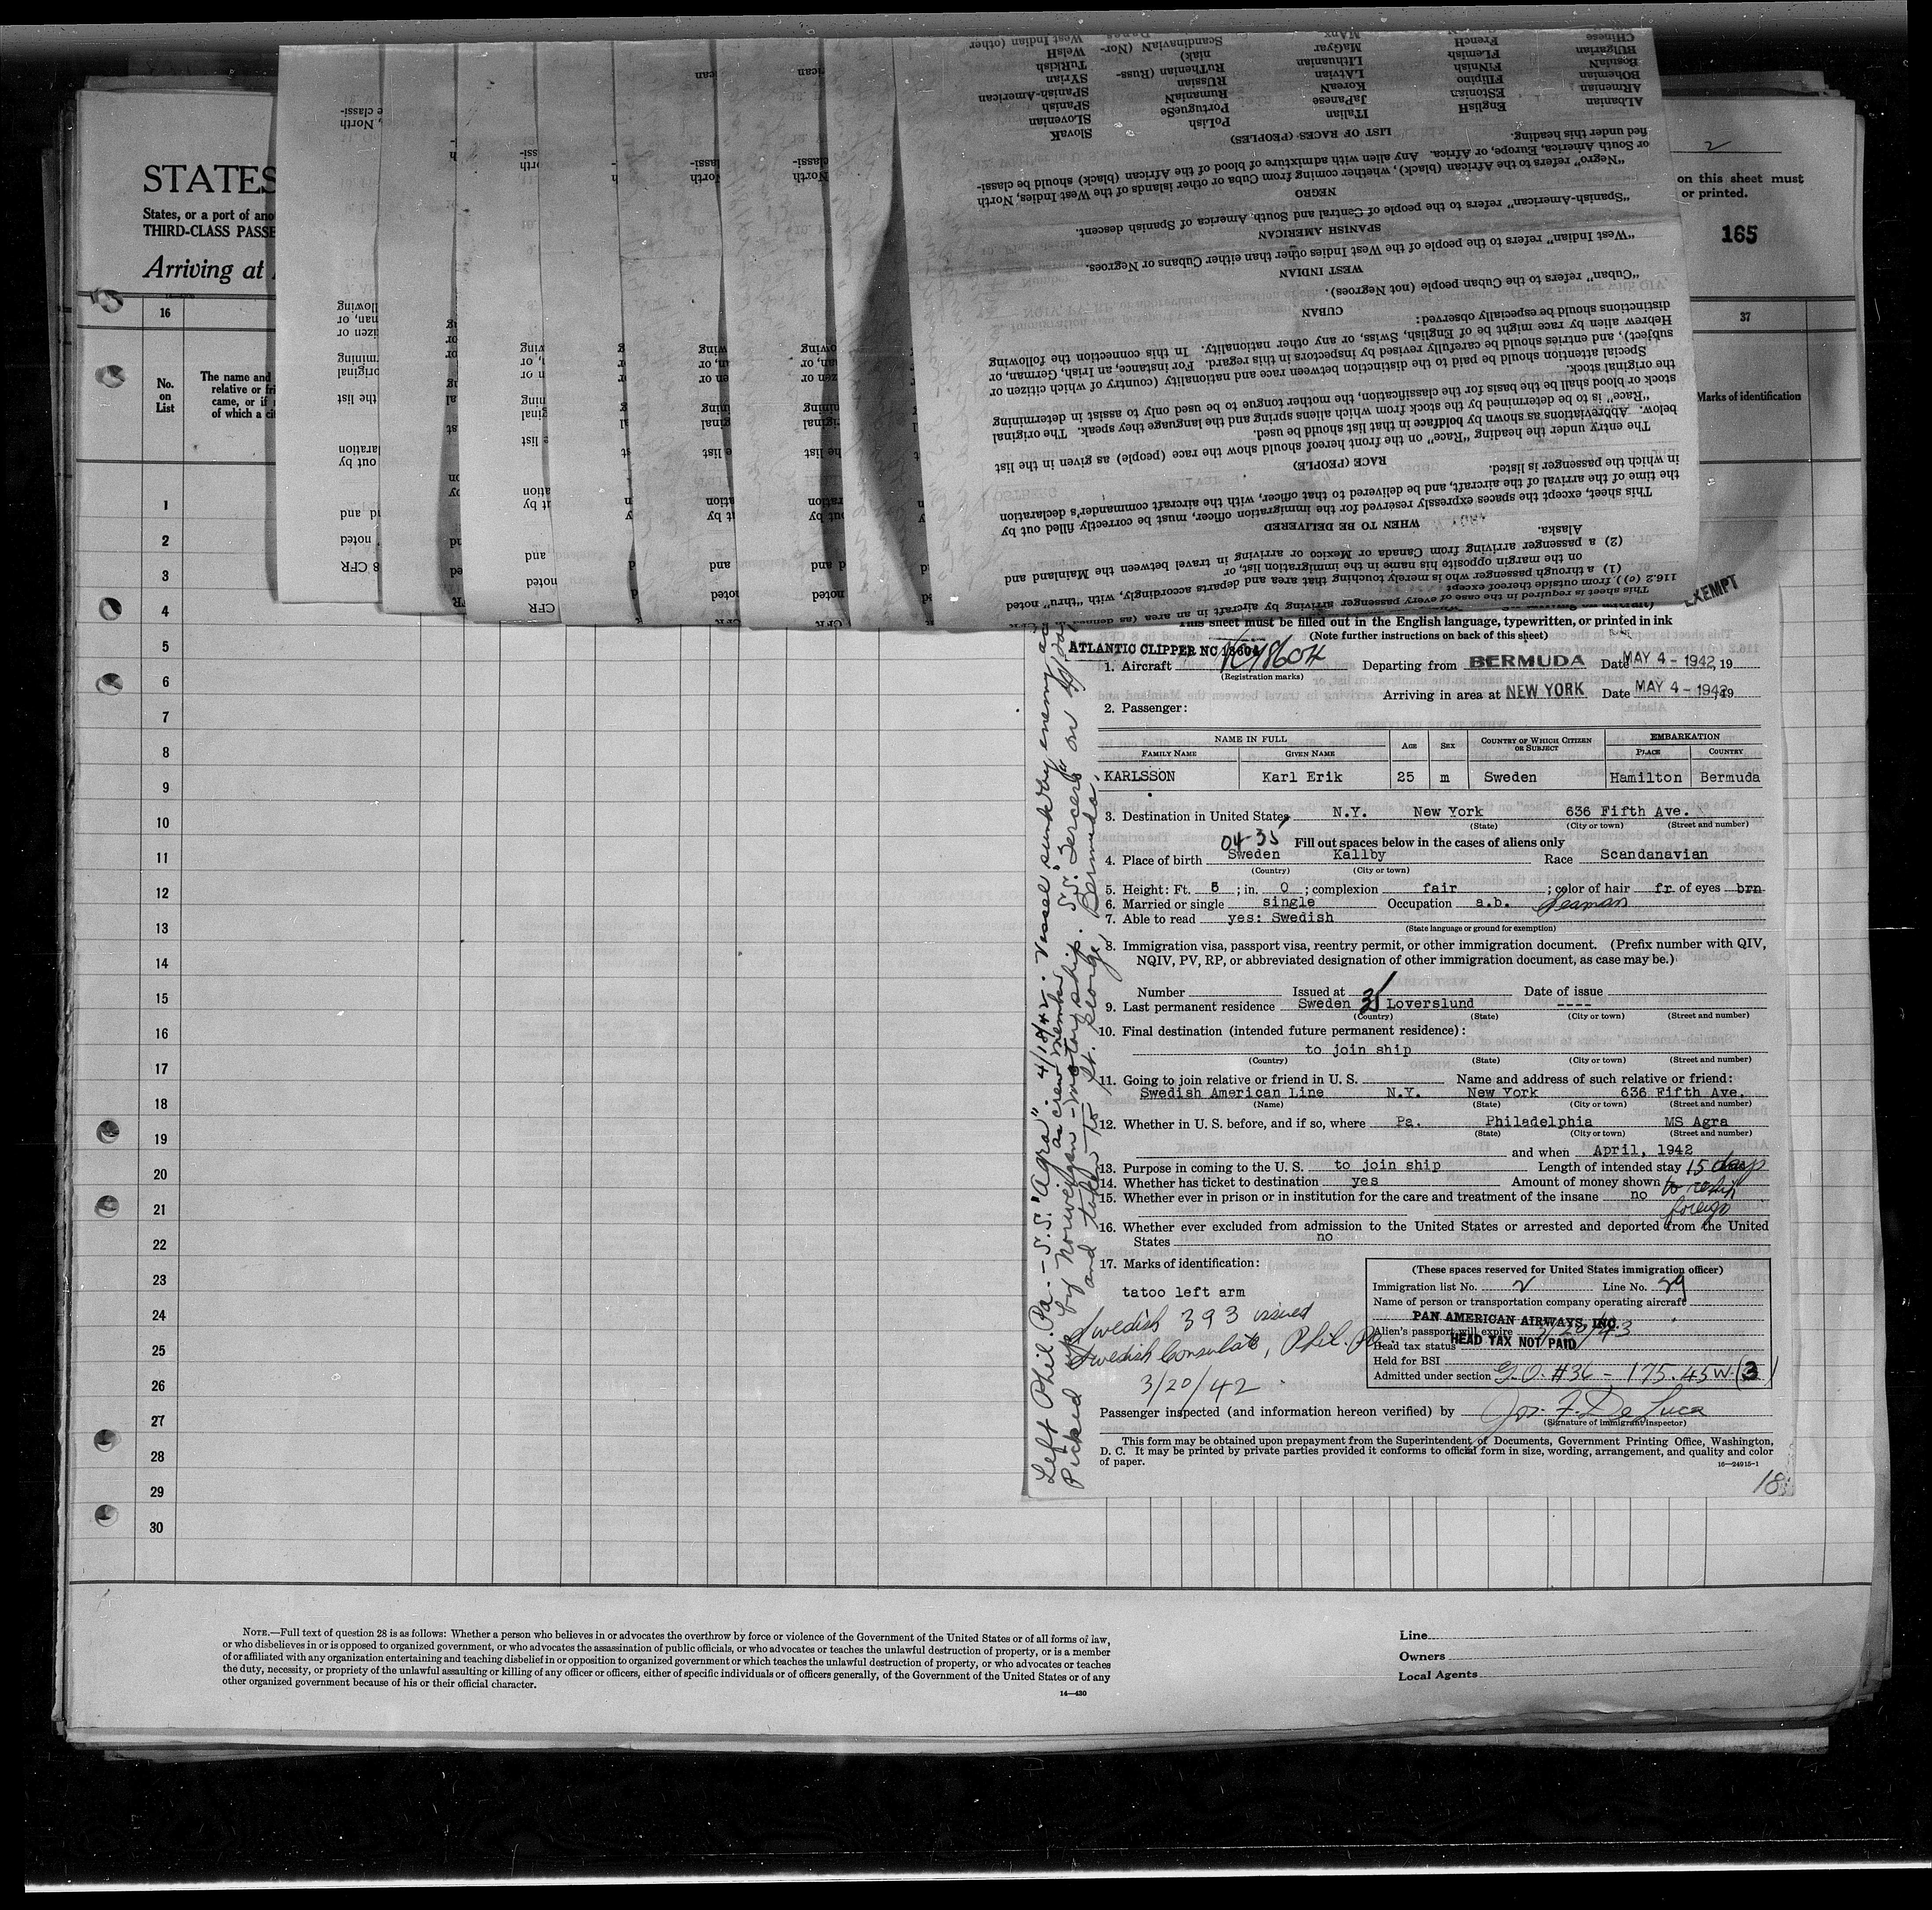 STATES
States, or a port of ano
THIRD-CLASS PASSE
Arriving at
2
on this sheet must
or printed.
165
16
37
No.
on
List
The name and
relative or fri
came, or if
of which a cit
Marks of identification
1
2
3
4
5
6
7
8
9
10
11
12
13
14
15
16
17
18
19
20
21
22
23
24
25
26
27
28
29
30
CHinese
BUlgarian
BosniaN
BOhemian
ARmenian
ALbanian
FrencH
FLemish
FiNnish
Filipino
ESTonian
EnglisH
MaGyar
LIthuanian
LAtvian
KoreaN
JaPanese
ITalian
Scandinavian (Nor-
niak)
RuThenian (Russ-
RUssian
RumaniaN
PortugeSe
PoLish
West Indian (other
WelsH
TuRkish
SYrian
SPanish-American
SPanish
SLOvenian
SlovaK
LIST OF RACES (PEOPLES)
fied under this heading.
or South America, Europe, or Africa. Any alien with admixture of blood of the African (black) should be classi-
"Negro" refers to the African (black), whether coming from Cuba or other islands of the West Indies, North
NEGRO
"Spanish-American" refers to the people of Central and South America of Spanish descent.
SPANISH AMERICAN
"West Indian" refers to the people of the West Indies other than either Cubans or Negroes.
WEST INDIAN
"Cuban" refers to the Cuban people (not Negroes).
CUBAN
distinctions should be especially observed:
Hebrew alien by race might be of English, Swiss, or any other nationality. In this connection the following
subject), and entries should be carefully revised by inspectors in this regard. For instance, an Irish, German, or
Special attention should be paid to the distinction between race and nationality (country of which citizen or
the original stock.
stock or blood shall be the basis for the classification, the mother tongue to be used only to assist in determining
"Race" is to be determined by the stock from which aliens spring and the language they speak. The original
below. Abbreviations as shown by boldface in that list should be used.
The entry under the heading "Race" on the front hereof should show the race (people) as given in the list
RACE (PEOPLE)
in which the passenger is listed.
the time of the arrival of the aircraft, and be delivered to that officer, with the aircraft commander's declaration
This sheet, except the spaces expressly reserved for the immigration officer, must be correctly filled out by
WHEN TO BE DELIVERED
Alaska.
(2) a passenger arriving from Canada or Mexico or arriving in travel between the Mainland and
on the margin opposite his name in the immigration list, or
(1) a through passenger who is merely touching that area and departs accordingly, with "thru" noted
116.2 (c) ) from outside thereof except
This sheet is required in the case of every passenger arriving by aircraft in an area (as defined in 8 CFR
EXEMPT
This sheet must be filled out in the English language, typewritten, or printed in ink
(Note further instructions on back of this sheet)
ATLANTIC CLIPPER NC 18604
1. Aircraft NC18604 Departing from BERMUDA Date MAY 4 - 1942, 19
(Registration marks)
Arriving in area at NEW YORK Date MAY 4 - 1942, 19
2. Passenger:
NAME IN FULL
FAMILY NAME
GIVEN NAME
AGE
SEX
COUNTRY OF WHICH CITIZEN OR SUBJECT
EMBARKATION
PLACE
COUNTRY
KARLSSON Karl Erik 25 m Sweden Hamilton Bermuda
3. Destination in United States, N.Y. New York 636 Fifth Ave.
(State) (City or town) (Street and number)
04-35
Fill out spaces below in the cases of aliens only
4. Place of birth Sweden Kallby Race Scandanavian
(Country) (City or town)
5. Height: Ft. 5 ; in. 0 ; complexion fair ; color of hair fr. of eyes brn
6. Married or single single Occupation a.b. Seaman
7. Able to read yes: Swedish
(State language or ground for exemption)
8. Immigration visa, passport visa, reentry permit, or other immigration document. (Prefix number with QIV,
NQIV, PV, RP, or abbreviated designation of other immigration document, as case may be.)
Number Issued at Date of issue
9. Last permanent residence Sweden 35 Loverslund ----
(Country) (State) (City or town) (Street and number)
10. Final destination (intended future permanent residence):
to join ship
(Country) (State) (City or town) (Street and number)
11. Going to join relative or friend in U. S. Name and address of such relative or friend:
Swedish American Line N.Y. New York 636 Fifth Ave.
(Name) (State) (City or town) (Street and number)
12. Whether in U. S. before, and if so, where Pa. Philadelphia MS Agra
(State) (City or town) (Street and number)
and when April, 1942
13. Purpose in coming to the U. S. to join ship Length of intended stay 15 days
14. Whether has ticket to destination yes Amount of money shown to reship
15. Whether ever in prison or in institution for the care and treatment of the insane no
foreign
16. Whether ever excluded from admission to the United States or arrested and deported from the United
States no
17. Marks of identification:
tatoo left arm
Swedish 393 issued
Swedish Consulate, Phil. Pa.
3/20/42
(These spaces reserved for United States immigration officer)
Immigration list No. 2 Line No. 29
Name of person or transportation company operating aircraft
PAN AMERICAN AIRWAYS, INC.
Alien's passport will expire 3/20/43
Head tax status HEAD TAX NOT PAID
Held for BSI
Admitted under section G.O. #36 - 175.45W. (3)
Passenger inspected (and information hereon verified) by Jos. F. De Luca
(Signature of immigrant inspector)
This form may be obtained upon prepayment from the Superintendent of Documents, Government Printing Office, Washington,
D. C. It may be printed by private parties provided it conforms to official form in size, wording, arrangement, and quality and color
of paper.
16—24915-1
18
Left Phil. Pa. - S.S. "Agra" 4/18/42. Vessel sunk by enemy
as crew member
Picked up by Norweigan - motor ship. S.S. Tercero on
and taken to St. George, Bermuda.
NOTE.—Full text of question 28 is as follows: Whether a person who believes in or advocates the overthrow by force or violence of the Government of the United States or of all forms of law,
or who disbelieves in or is opposed to organized government, or who advocates the assassination of public officials, or who advocates or teaches the unlawful destruction of property, or is a member
of or affiliated with any organization entertaining and teaching disbelief in or opposition to organized government or which teaches the unlawful destruction of property, or who advocates or teaches
the duty, necessity, or propriety of the unlawful assaulting or killing of any officer or officers, either of specific individuals or of officers generally, of the Government of the United States or of any
other organized government because of his or their official character.
14—430
Line
Owners
Local Agents